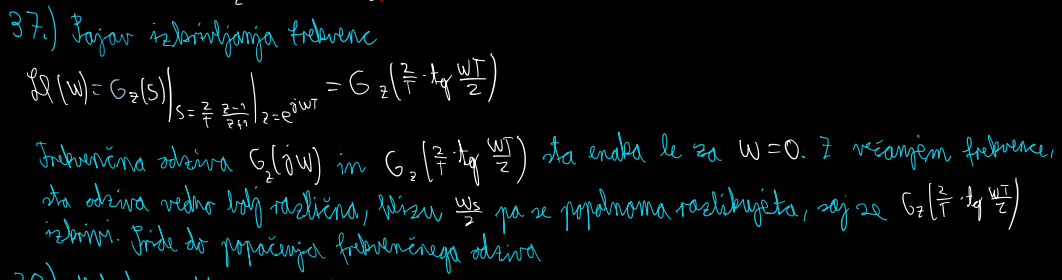 37.) Pojav izkrivljanja frekvenc
H(w) = G_z(s)|_{s = \frac{2}{T} \frac{z-1}{z+1}}|_{z = e^{jwT}} = G_z(\frac{2}{T} \cdot tg \frac{wT}{2})
Frekvenčna odziva G_z(jw) in G_z(\frac{2}{T} \cdot tg \frac{wT}{2}) sta enaka le za w=0. Z večanjem frekvence,
sta odziva vedno bolj različna, blizu \frac{w_s}{2} pa se popolnoma razlikujeta, saj se G_z(\frac{2}{T} \cdot tg \frac{wT}{2})
izkrivi. Pride do popačenja frekvenčnega odziva